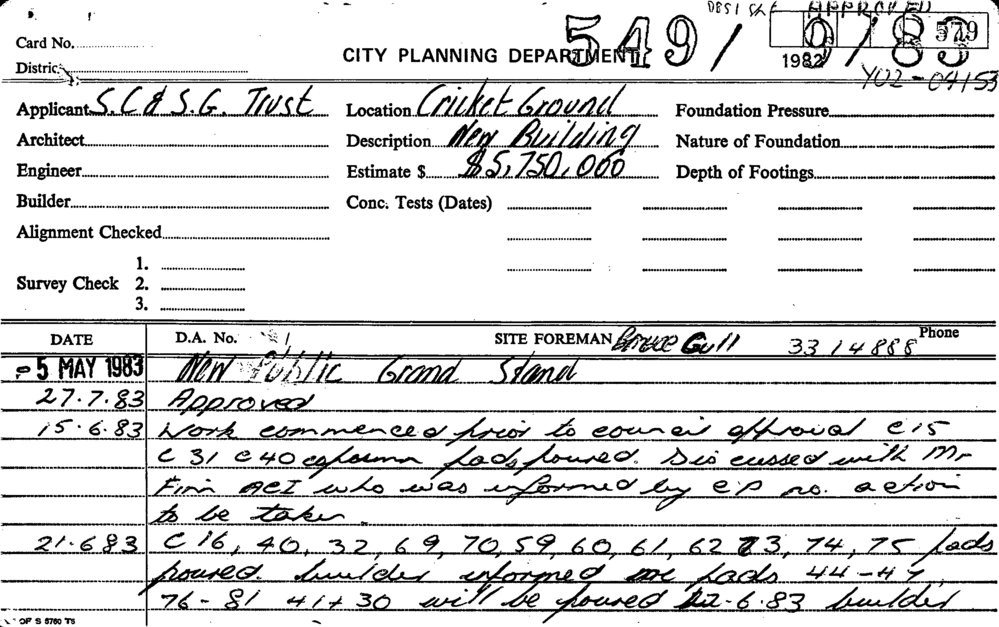 APPROVED
Card No.
549/ 9/83 579
CITY PLANNING DEPARTMENT
1982
District
Y02-04153
Applicant S.C & S.G. Trust Location Cricket Ground Foundation Pressure
Architect Description New Building Nature of Foundation
Engineer Estimate $ $5,750,000 Depth of Footings
Builder Conc. Tests (Dates)
Alignment Checked
1.
Survey Check 2.
3.
DATE D.A. No. SITE FOREMAN Bruce Gull 3314888 Phone
-5 MAY 1983 New Public Grand Stand
27.7.83 Approved
15.6.83 Work commenced prior to council approval C15
C 31 C 40 column pads poured. Discussed with Mr
Finn ACI who was informed by CP no. action
to be taken
21.6.83 C 16, 40, 32, 69, 70, 59, 60, 61, 62 73, 74, 75 pads
poured. builder informed me pads 44-47
76-81 41+30 will be poured 22-6.83 builder
OF S 5760 T5